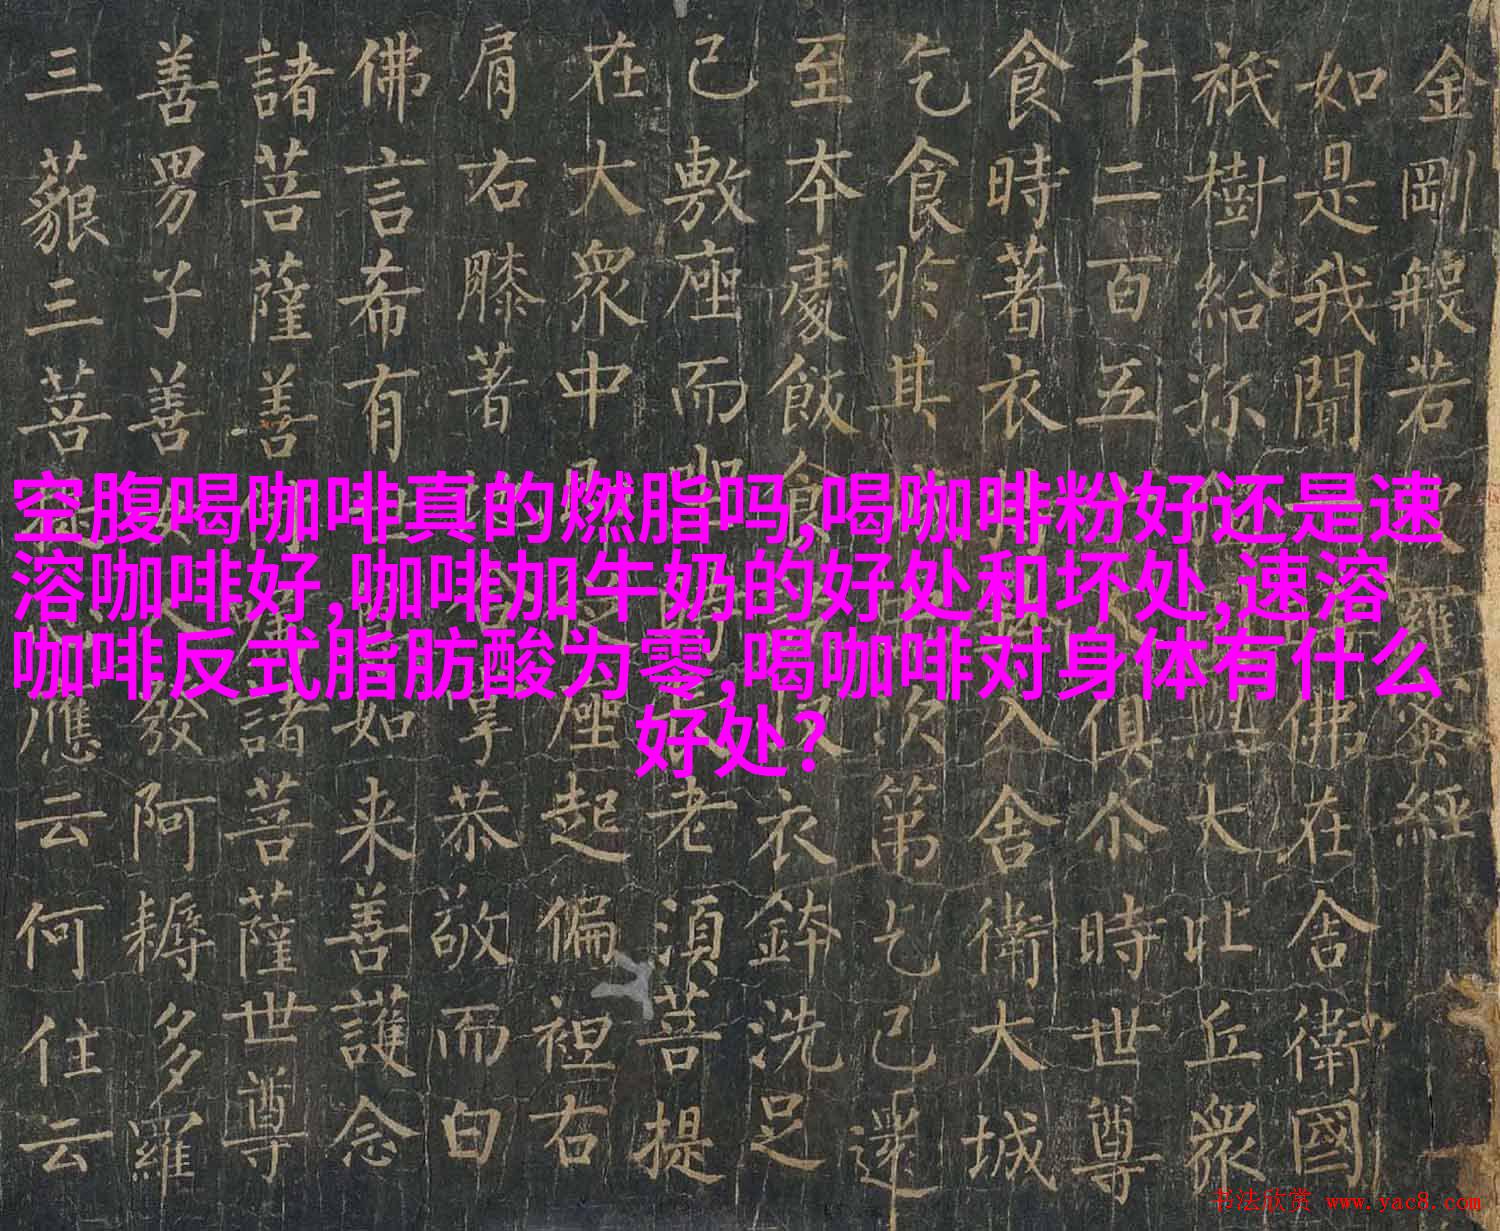 空腹喝咖啡真的燃脂吗,喝咖啡粉好还是速
溶咖啡好,咖啡加牛奶的好处和坏处,速溶
咖啡反式脂肪酸为零,喝咖啡对身体有什么
好处?
金剛般若蜜經
如是我聞佛在舍衛國
祇樹給孤大比丘眾
千二百五俱尒時世尊
食時著衣入舍衛大城
乞食於其次第乞已還
至本處飯食衣鉢洗足
已敷座而老須菩提
在大眾中座起偏袒右
肩右膝著掌恭敬而白
佛言希有如来善護念
諸菩薩善諸菩薩世尊
善男子善發阿耨多羅
三藐三菩應云何住云
书法欣赏 www.yac8.com